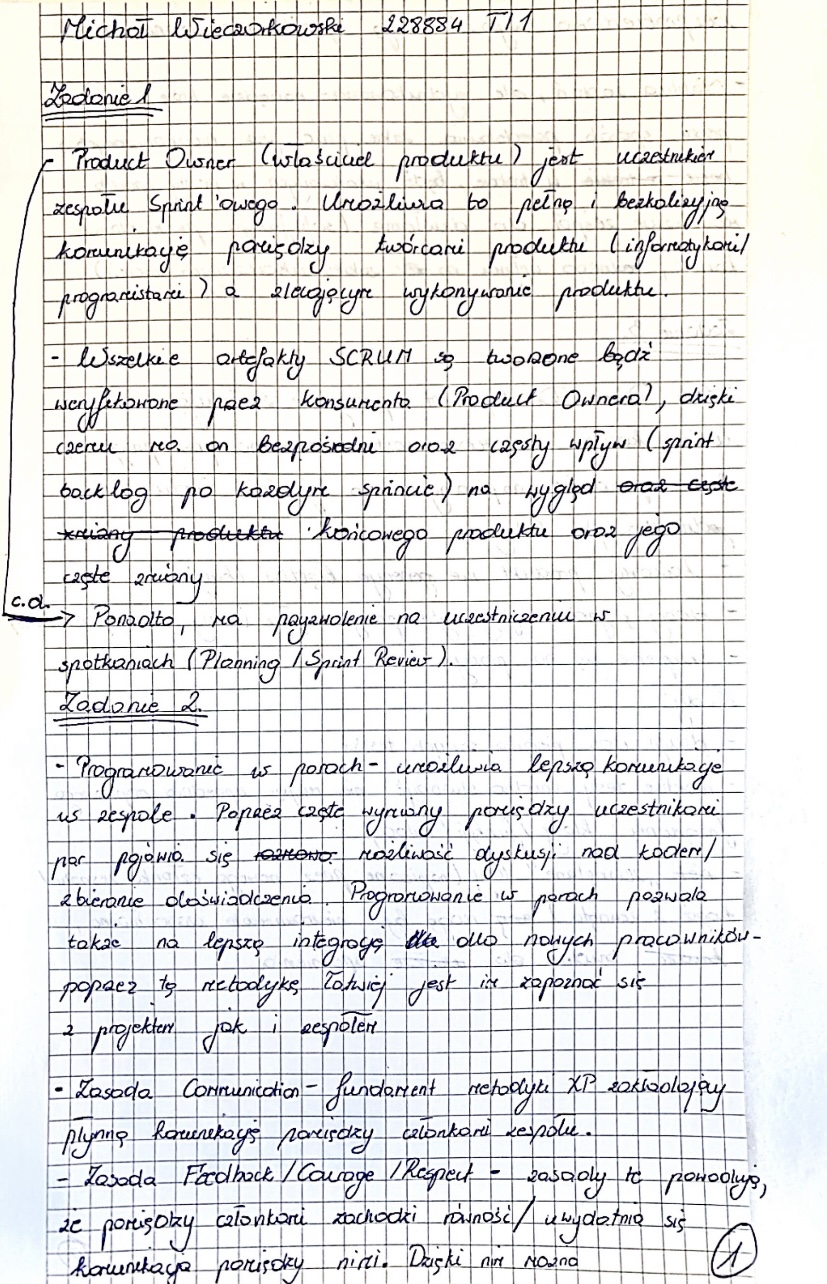 Michał Wieczorkowski 228884 TI1
Zadanie 1
- Product Owner (właściciel produktu) jest uczestnikiem
zespołu Sprint'owego. Umożliwia to pełną i bezkolizyjną
komunikację pomiędzy twórcami produktu (informatykami/
programistami) a zlecającym wykonywanie produktu.
- Wszelkie artefakty SCRUM są tworzone bądź
weryfikowane przez konsumenta (Product Ownera), dzięki
czemu ma on bezpośredni oraz częsty wpływ (sprint
backlog po każdym sprincie) na wygląd oraz częste
zmiany produktu końcowego produktu oraz jego
częste zmiany
c.d. → Ponadto, ma przyzwolenie na uczestniczeniu w
spotkaniach (Planning / Sprint Review).
Zadanie 2.
- Programowanie w parach - umożliwia lepszą komunikację
w zespole. Poprzez częste wymiany pomiędzy uczestnikami
par pojawia się możliwość dyskusji nad kodem/
zbieranie doświadczenia. Programowanie w parach pozwala
także na lepszą integrację dla dla nowych pracowników -
poprzez tę metodykę łatwiej jest im zapoznać się
z projektem jak i zespołem
- Zasada Communication - fundament metodyki XP zakładający
płynną komunikację pomiędzy członkami zespołu.
- Zasada Feedback / Courage / Respect - zasady te powodują,
że pomiędzy członkami zachodzi równość / uwydatnia się
komunikacja pomiędzy nimi. Dzięki nim można
1